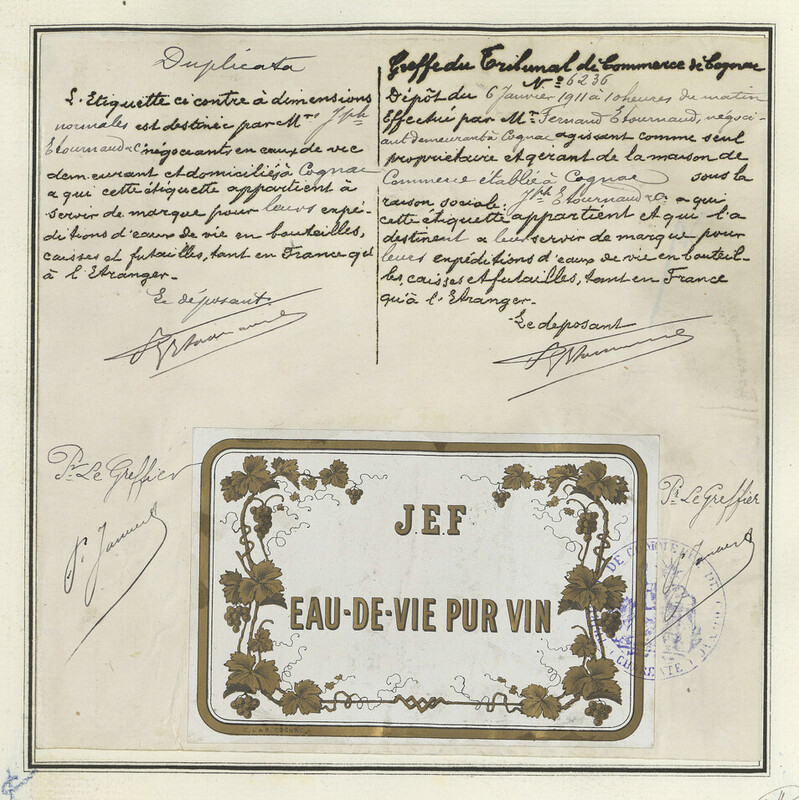 Duplicata
L'Etiquette ci contre à dimensions
normales est destinée par Mrs Jph
Etournaud & Cie négociants en eaux de vie
demeurant et domiciliés à Cognac
a qui cette étiquette appartient à
servir de marque pour leurs expé-
ditions d'eaux de vie en bouteilles,
caisses et futailles, tant en France qu'
à l'Etranger.-
Le déposant.
Greffe du Tribunal de Commerce de Cognac
No 6236
Dépôt du 6 Janvier 1911 à 10 heures du matin
Effectué par Mr Fernand Etournaud, négoci-
ant demeurant à Cognac agissant comme seul
propriétaire et gérant de la maison de
Commerce établie à Cognac sous la
raison sociale: Jph Etournaud & Co a qui
cette étiquette appartient et qui l'a
destinent a leur servir de marque pour
leurs expéditions d'eaux de vie en bouteil-
les, caisses et futailles, tant en France
qu'à l'Etranger.-
Le deposant
Pr Le Greffier
Pr Le Greffier
J.E.F
EAU-DE-VIE PUR VIN
DE COMMERCE DE COGNAC
CHARENTE